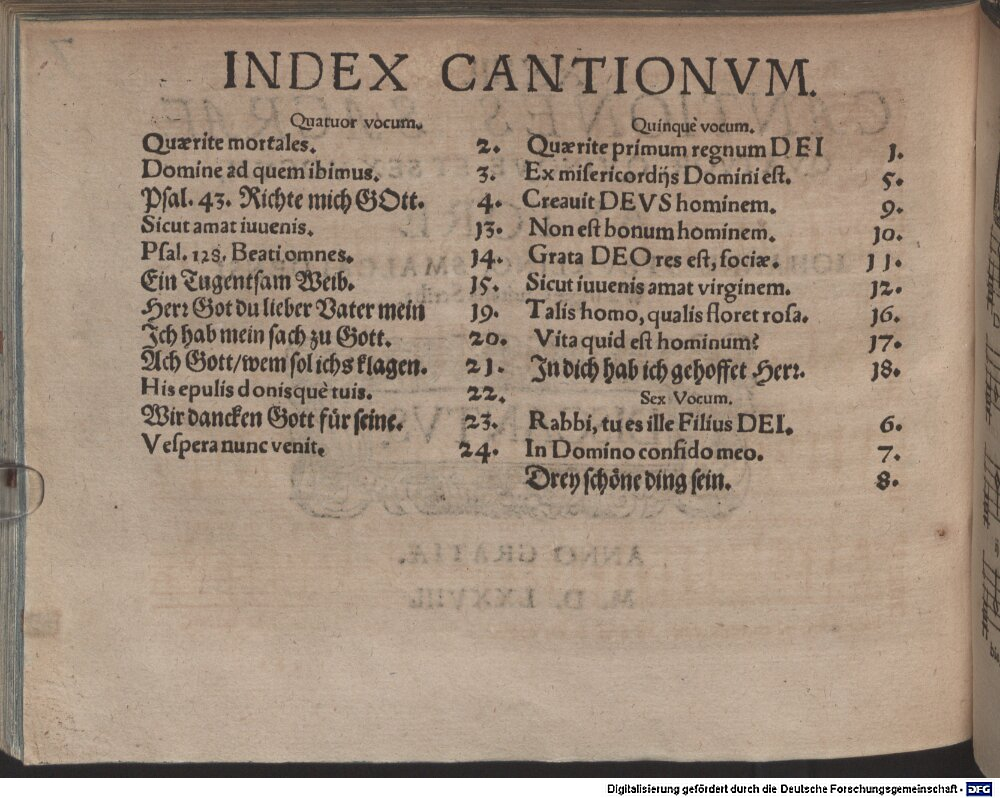 INDEX CANTIONVM.
Quatuor vocum.
Quærite mortales. 2.
Domine ad quem ibimus. 3.
Psal. 43. Richte mich GOtt. 4.
Sicut amat iuuenis. 13.
Psal. 128. Beati omnes. 14.
Ein Tugentsam Weib. 15.
Herr Got du lieber Vater mein 19.
Ich hab mein sach zu Gott. 20.
Ach Gott/wem sol ichs klagen. 21.
His epulis donisquè tuis. 22.
Wir dancken Gott für seine. 23.
Vespera nunc venit. 24.
Quinquè vocum.
Quærite primum regnum DEI 1.
Ex misericordijs Domini est. 5.
Creauit DEVS hominem. 9.
Non est bonum hominem. 10.
Grata DEO res est, sociæ. 11.
Sicut iuuenis amat virginem. 12.
Talis homo, qualis floret rosa. 16.
Vita quid est hominum? 17.
In dich hab ich gehoffet Herr. 18.
Sex Vocum.
Rabbi, tu es ille Filius DEI. 6.
In Domino confido meo. 7.
Drey schöne ding sein. 8.
Digitalisierung gefördert durch die Deutsche Forschungsgemeinschaft - DFG